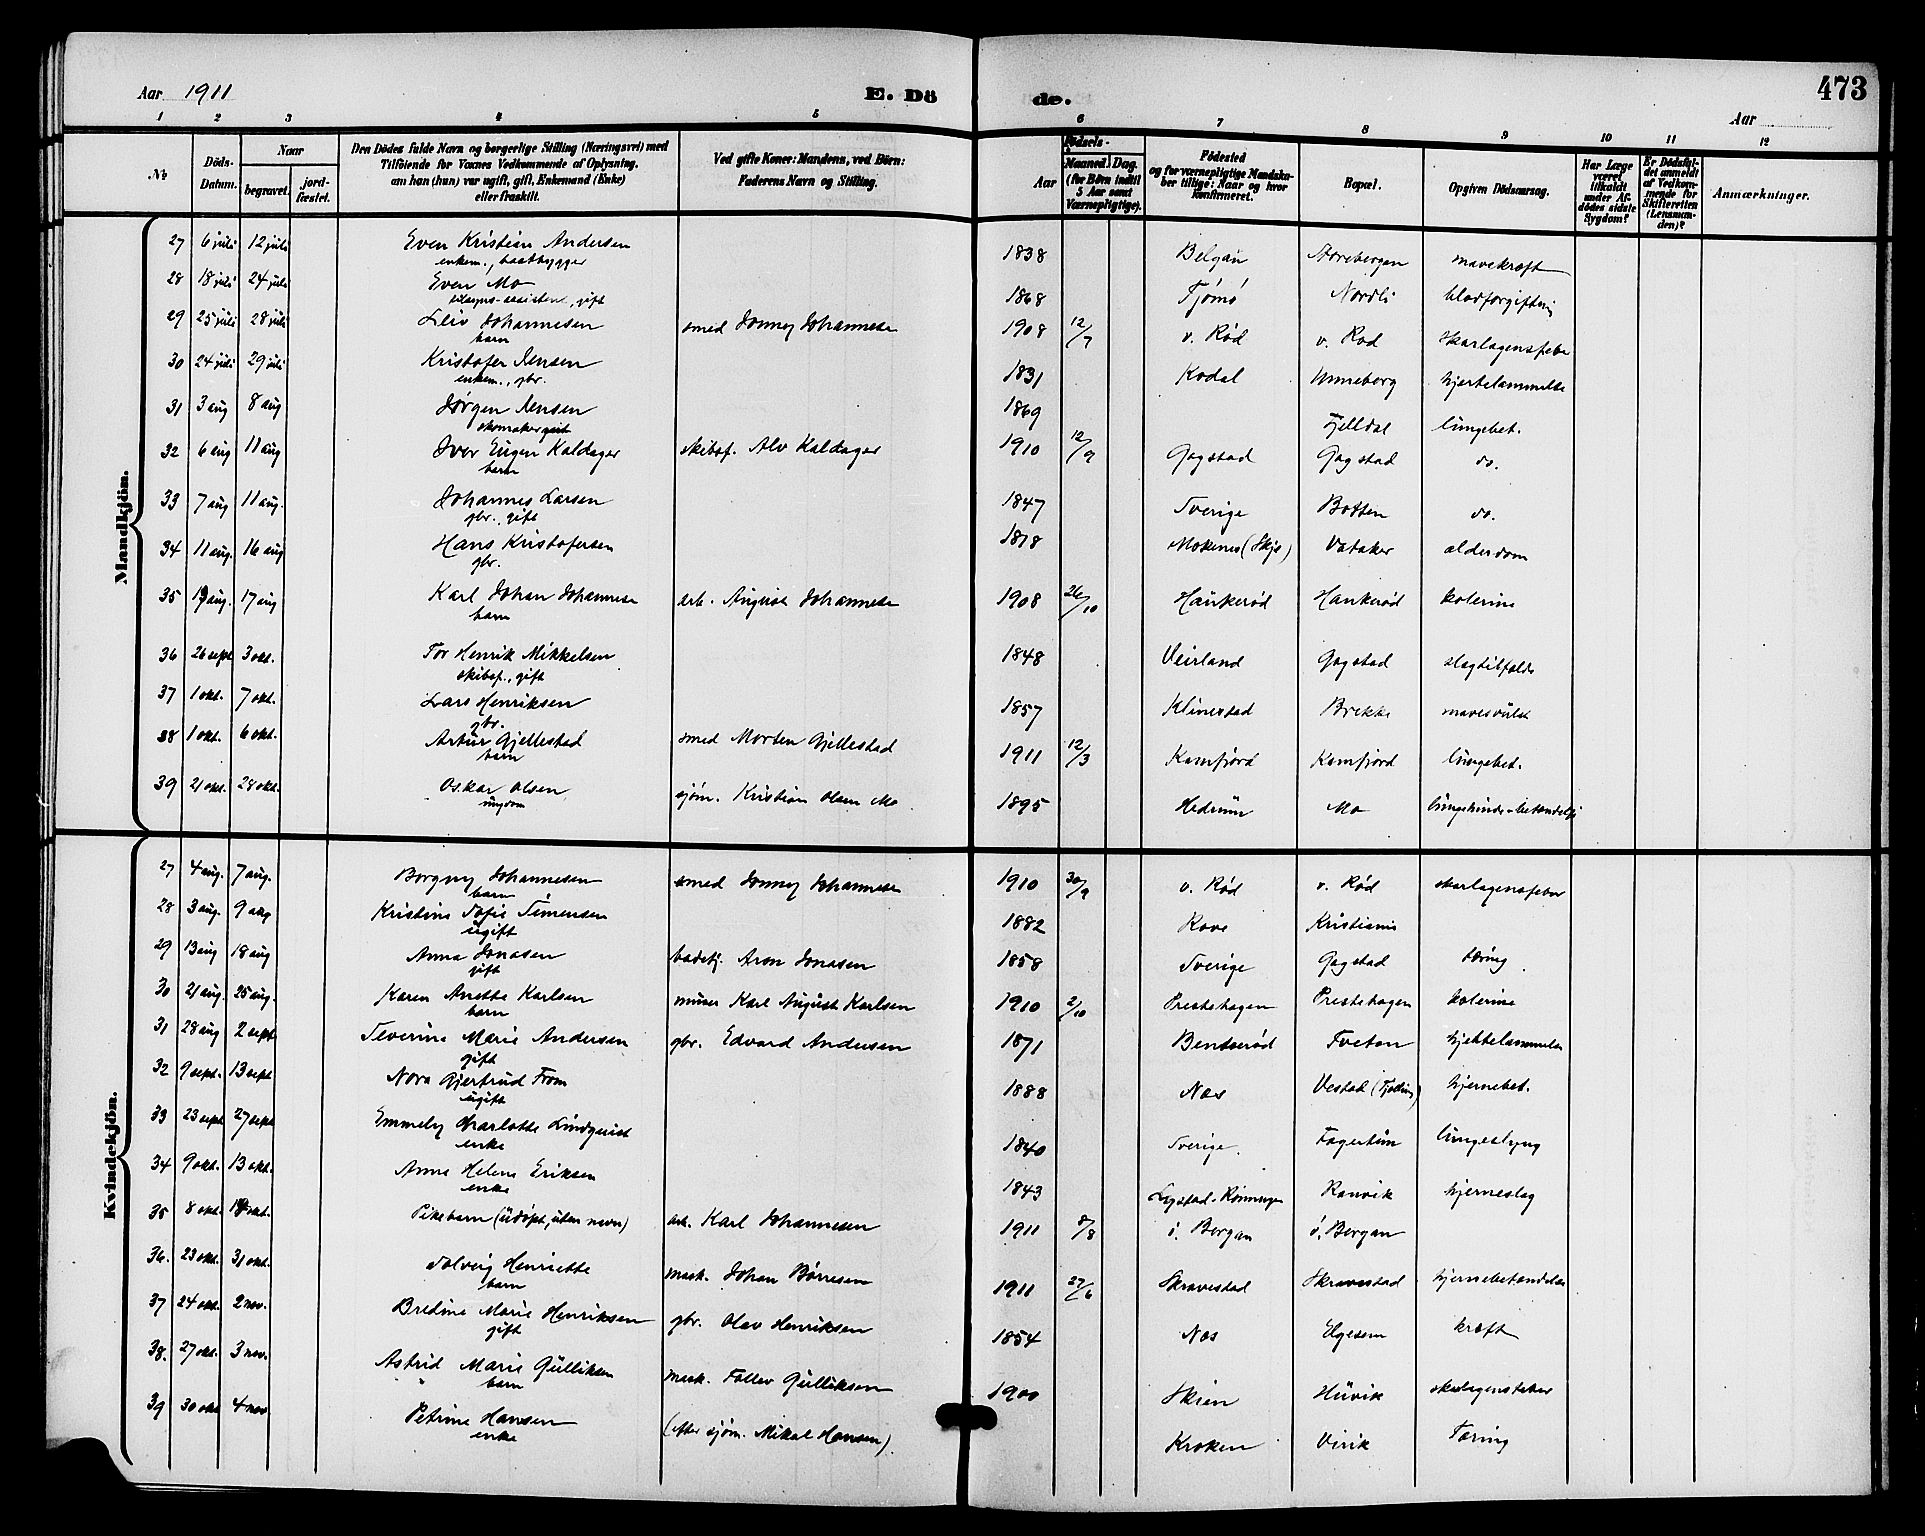 Aar 1911
E. Dö
de.
473
Aar
1 2 3 4 5 6 7 8 9 10 11 12
No
Döds-Datum.
Naar
begravet.
jord-fæstet.
Den Dödes fulde Navn og borgerlige Stilling (Næringsvei) med
Tilföiende for Voxnes Vedkommende af Oplysning,
om han (hun) var ugift, gift, Enkemand (Enke)
eller fraskilt.
Ved gifte Koner: Mandens, ved Börn:
Faderens Navn og Stilling.
Födsels-
Aar
Maaned. Dag.
(for Börn indtil
5 Aar samt
Værnepligtige).
Födested
og for værnepligtige Mandska-
ber tillige: Naar og hvor
konfirmeret.
Bopæl.
Opgiven Dödsaarsag.
Har Læge
været
tilkaldt
under Af-
dödes sidste
Sygdom?
Er Dödsfal-
det anmeldt
af Vedkom-
mende for
Skifteretten
(Lensman-
den)?
Anmærkninger.
Mandkjön.
27 6 juli 12 juli Even Kristian Andersen 1838 Belgau Norebergan mavekræft
enkem., baatbygger
28 18 juli 24 juli Even Mo 1868 Tjømø Nordli blodforgiftnin
gift
29 25 juli 28 juli Leiv Johannesen smed Jonney Johannese 1908 12/7 v. Rød v. Rød skarlagensfeber
barn
30 24 juli 29 juli Kristofer Jensen 1831 Kodal Unneberg hjertelammelse
enkem., gbr.
31 3 aug 8 aug Jørgen Jensen 1869 Fjelldal lungebet.
skomaker gift
32 6 aug 11 aug Iver Eugen Kaldager skibsf. Alv Kaldager 1910 12/9 Gogstad Gogstad do.
barn
33 7 aug 11 aug. Johannes Larsen 1847 Sverige Botten do.
gbr., gift
34 11 aug. 16 aug Hans Kristofersen 1818 Mokenes (Skjs) Vataker alderdom
gbr.
35 aug. 17 aug Karl Johan Johannese arb. August Johannese 1908 26/10 Haukerød Haukerød kolerine
barn
36 26 sept 3 okt. Tor Henrik Mikkelsen 1848 Veierland Gogstad slagtilfælde
skibsf., gift
37 1 okt. 7 okt. Lars Henriksen 1857 Klinestad Brekke mavesvulst
gbr.
38 1 okt. 6 okt. Artur Gjellestad smed Morten Gjellestad 1911 12/3 Kamfjord Kamfjord lungebet.
barn
39 21 okt. 28 okt. Oskar Olsen sjøm. Kristian Olsen Mo 1895 Hedrum Mo lungehinde-betændelse
ungdom
Kvindekjön.
27 4 aug. 7 aug. Borgny Johannesen smed Jonney Johannese 1910 30/9 v. Rød v. Rød skarlagensfeber
barn
28 3 aug. 9 aug Kristine Sofie Simensen 1882 Kove Kristiania
ugift
29 13 aug 18 aug Anna Jonasen badetj. Aron Jonasen 1858 Sverige Gogstad tæring
gift
30 21 aug. 25 aug. Karen Anette Karlsen murer Karl August Karlsen 1910 2/10 Prestehagen Prestehagen kolerine
barn
31 28 aug 2 sept Severine Marie Andersen gbr. Edvard Andersen 1871 Bentserød Tveten hjertelammelse
gift
32 9 sept. 13 sept Nora Gjertrud From 1888 Nes Vestad (Tjølling) hjernebet.
ugift
33 23 sept 27 sept Emmely Charlotte Lindquist 1840 Sverige. Fagertun lungeslyng
enke
34 9 okt. 13 okt. Anna Helene Eriksen 1843 Ranvik hjerneslag
enke
35 8 okt. okt. Pikebarn (udøpt, uten navn) arb. Karl Johannesen 1911 8/8 ø. Bergan ø. Bergan
36. 23 okt. 31 okt. Solveig Henriette mask. Johan Børresen 1911 27/6 Skravestad Skravestad hjernebetændelse
barn
37 24 okt. 2 nov. Bredine Marie Henriksen gbr. Olav Henriksen 1854 Nes Elgesem kræft
gift
38. 27 okt. 3 nov. Astrid Marie Gulliksen mask. Tollev Gulliksen 1900 Skien Huvik skarlagensfeber
barn
39 30 okt 4 nov Petrine Hansen (efter sjøm. Mikal Hansen). Kroken Virik Tæring
enke